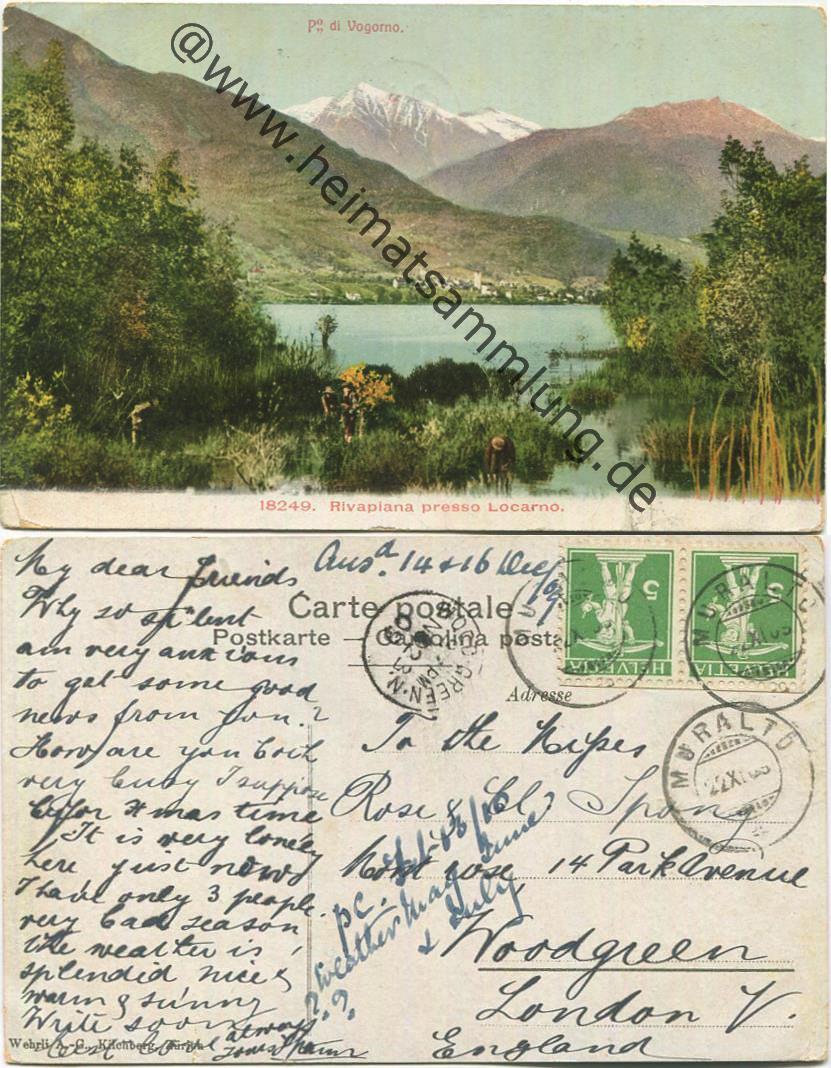 Po di Vogorno.
@www.heimatsammlung.de
18249. Rivapiana presso Locarno.
My dear friends
Why so silent
am very anxious
to get some good
news from you?
How are you both
very busy I suppose
befor Xmas time
It is very lonely
here just now
I have only 3 people.
very bad season
the weather is
splendid nice &
warm & sunny
Write soon
always
yours
Wehrli A.-G., Kilchberg, Zürich
Ansd 14 & 16 Dec
Carte postale
Postkarte – Cartolina postale
Adresse
WOOD-GREEN-N.
HELVETIA
5
HELVETIA
5
MURALTO
MURALTO
To the Misses
Rose & Spong
Montrose 14 Park Avenue
Woodgreen
London N.
England
p.c.
? Weather May June
& July
??